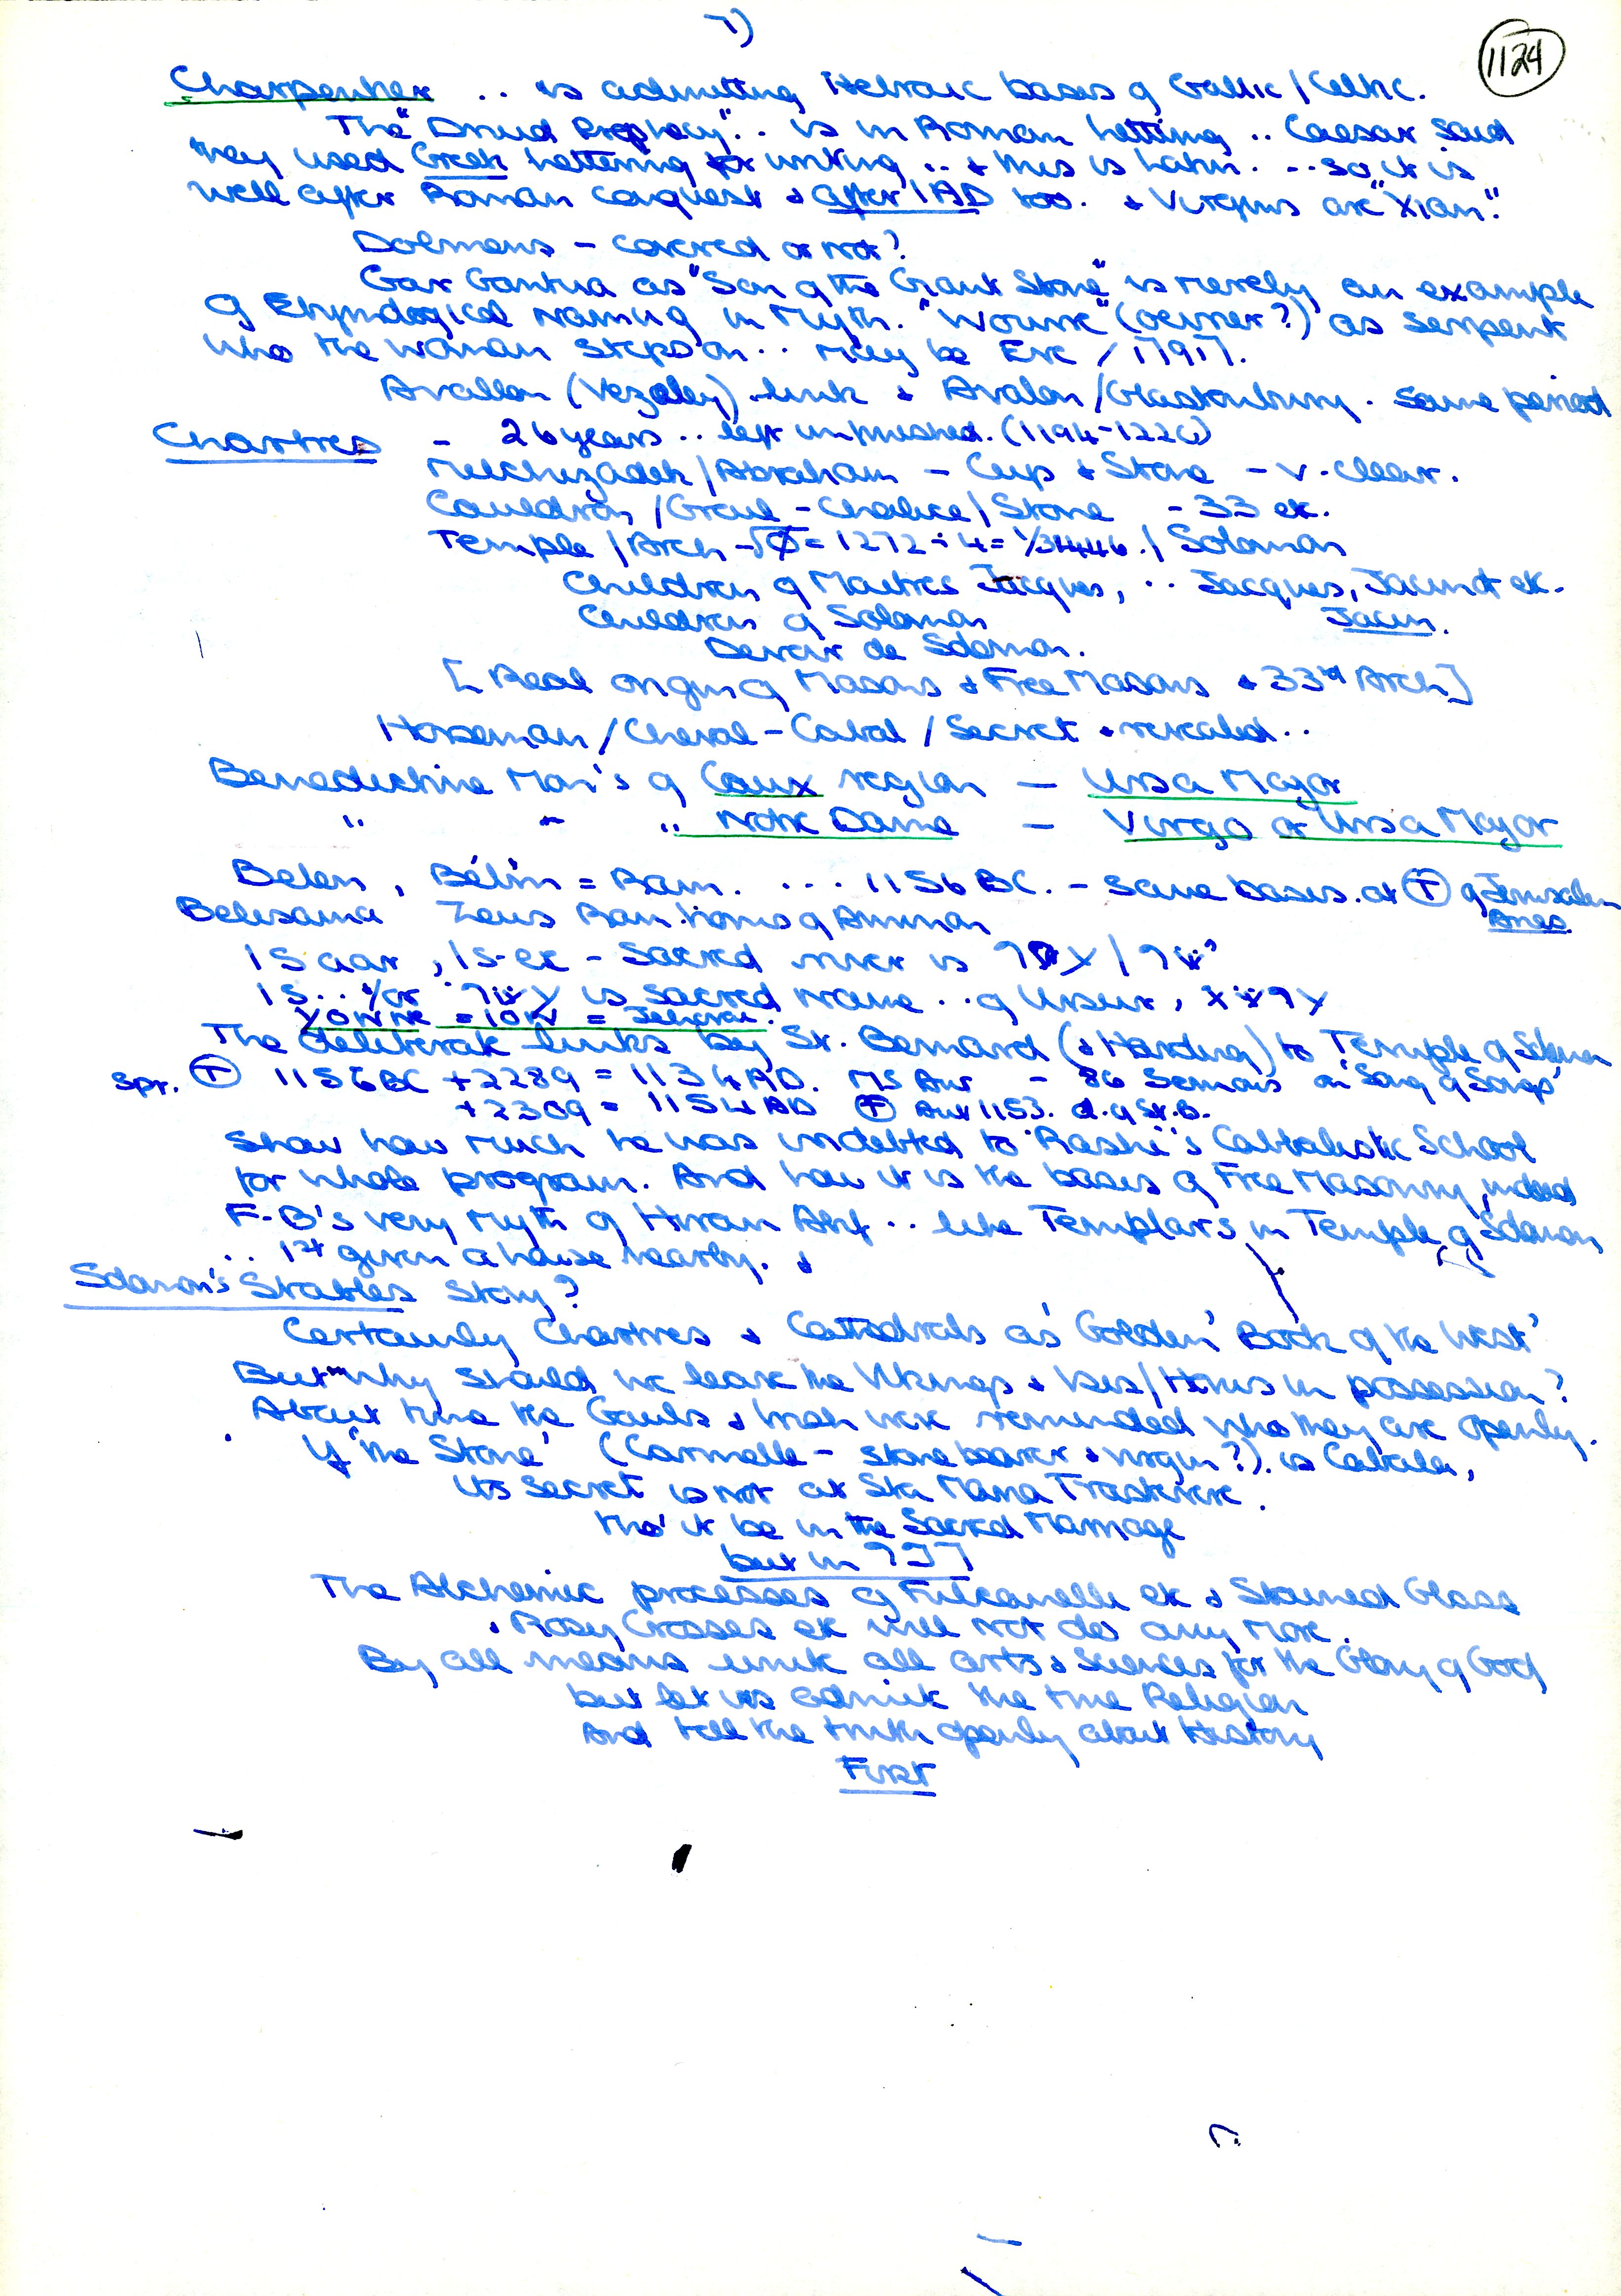 7)
1124
Charpentier .. is admitting Hebraic bases of Gallic / Celtic.
The "Druid Prophecy".. is in Roman lettering .. Caesar said
they used Greek lettering for writing .. & this is Latin. .. so it is
well after Roman conquest & after 1 AD too. & Virgins are "Xian".
Dolmens - covered or not?
Gar Gantua as "Son of the Giant Stone" is merely an example
of Etymological naming in Myth. "Wouivre" ( ?) as serpent
who the woman steps on .. may be Eve /
Avallon (Vezelay) .. link & Avalon / Glastonbury. Same period
Chartres - 26 years .. left unfinished. (1194-1220)
Melchizadek / Abraham - Cup & Stone - v. clear.
Cauldron / Graal - Chalice / Stone - 33 etc.
Temple / Arch - √Φ = 1272 ÷ 4 = / Solomon
Children of Maitres Jacques, .. Jacques, etc.
Children of Solomon Jacin.
Devoir de Solomon.
[Real origin of Masons & Free Masons & 33rd Arch]
Horseman / Cheval - Cabal / Secret & revealed ..
Benedictine Mon's of Caux region - Ursa Major
" " " Notre Dame - Virgo or Ursa Major
Belen, Bélin = Ram. ... 1156 BC. - same bases. at Ⓣ of Jerusalem
Belisama Zeus Ram Horns of Ammon Aries
Isaar, Is-er - Sacred river is
Is.. &/or is Sacred name .. of
Yonne = Ion = Jehovah.
The deliberate links by St. Bernard (& Harding) to Temple of Solomon
Spr. Ⓣ 1156 BC + 2289 = 1134 AD. MS Aut - 86 Sermons on 'Song of Songs'
+ 2309 = 1154 AD Ⓣ Aut 1153. d. of St. B.
Show how much he was indebted to 'Rashi''s Cabbalistic School
for whole program. And how it is the bases of Free Masonry, indeed
F-B's very Myth of Hiram Abif .. like Templars in Temple of Solomon,
.. 1st given a house nearby. &
Solomon's Stables Story?
Certainly Chartres & Cathedrals as 'Golden' Book of the West'
But why should we leave the Vikings & Isis / Horus in possession?
About time the Gauls & Irish were reminded who they are openly.
If 'the Stone' (Carmelle - stone bearer & virgin?) is Cabala,
its Secret is not at Sta Maria Trastevere.
tho' it be in the Sacred Marriage
but in
The Alchemic processes of Fulcanelli etc & Stained Glass
& Rosey Crosses etc will not do any more.
By all means unite all arts & Sciences for the Glory of God
but let us admit the true Religion
And tell the truth openly about History
First